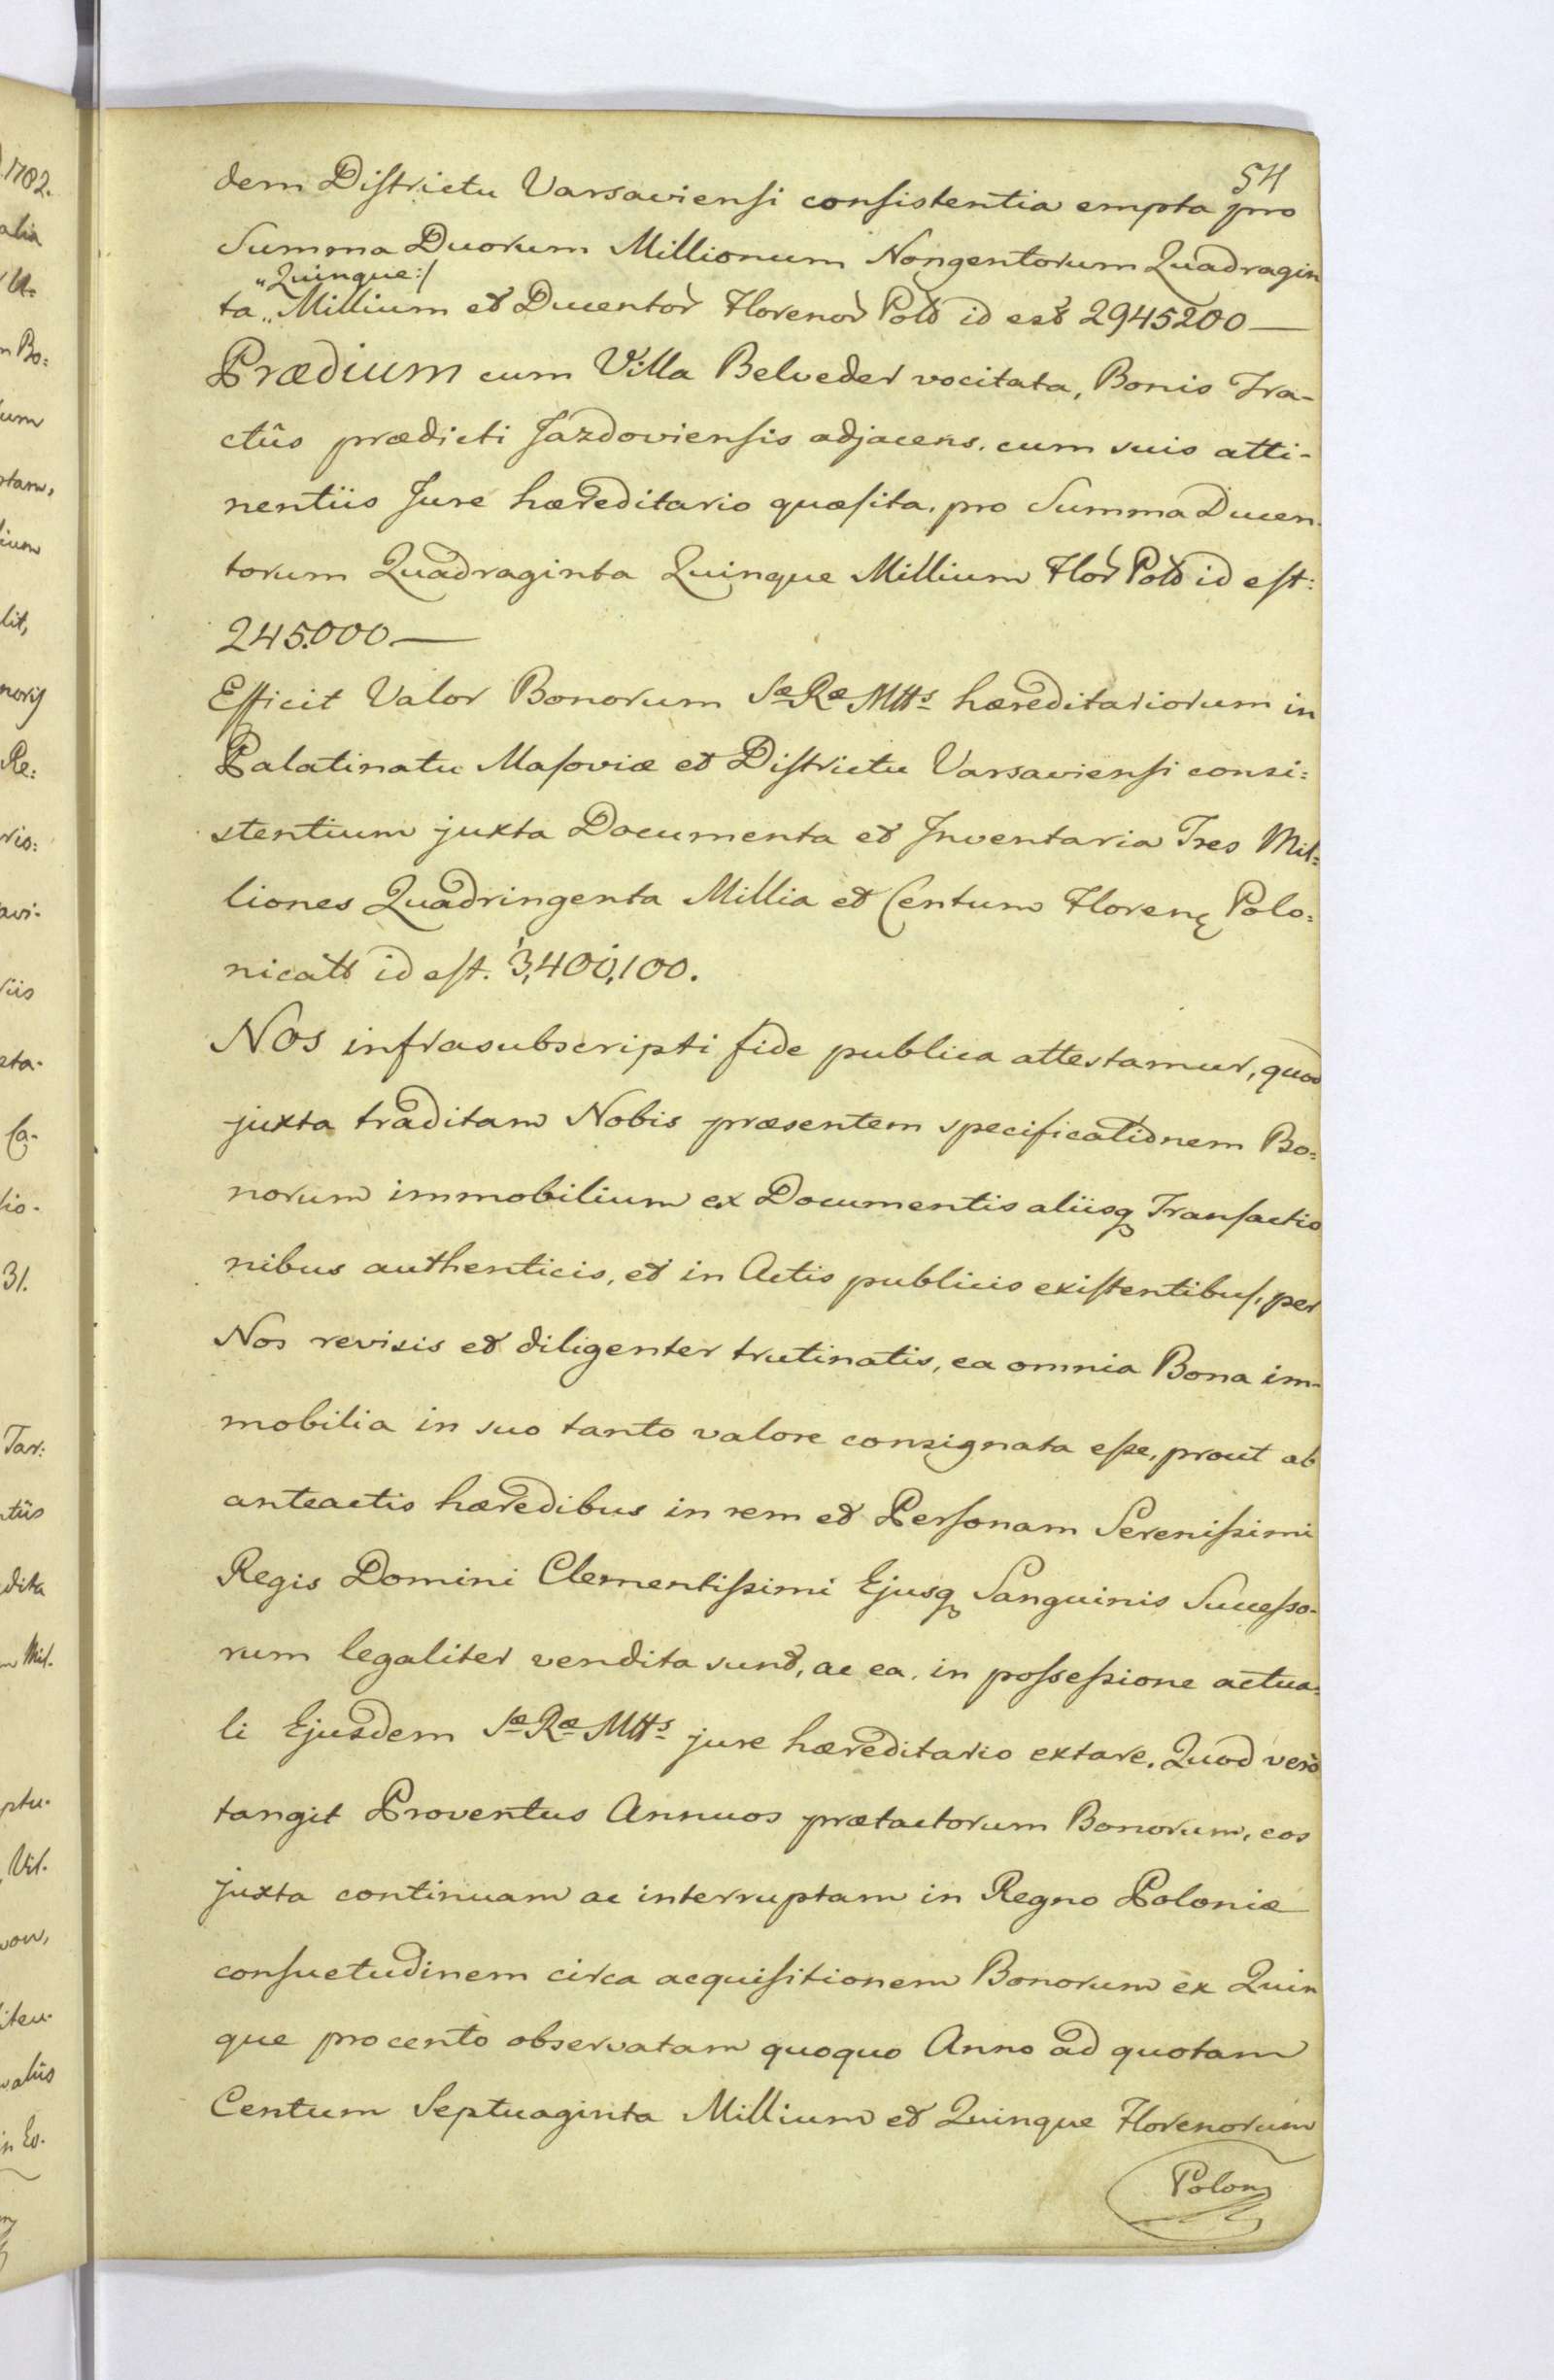 54
dem Diſtrictu Varsavienſi conſistentia empta pro
Summa Duorum Millionum Nongentorum Quadragin
„Quinque:/
ta„ Millium et Ducentor Florenor Pold id est 2945200—
Prædium cum Villa Belveder vocitata, Bonis Tra-
ctûs prædicti Jazdovienſis adjacens. cum suis atti-
nentiis Jure hæreditario quæſita. pro Summa Ducen
torum Quadraginta Quinque Millium Flor Pold id eſt:
245.000.—
Efficit Valor Bonorum Sæ Ræ Mtts hæreditariorum in
Palatinatu Maſoviæ et Diſtrictu Varsavienſi consi:
stentium juxta Documenta et Inventaria Tres Mil:
liones Quadringenta Millia et Centum Florenę Polo:
nicatt id eſt. 3,400,100.
NOS infrasubscripti fide publica attestamur, quod
juxta traditam Nobis præsentem specificationem Bo:
norum immobilium ex Documentis aliisq Tranſactio
nibus authenticis, et in Actis publicis exiſtentibuſ, per
Nos revisis et diligenter trutinatis, ea omnia Bona im-
mobilia in suo tanto valore consignata eſse, prout ab
anteactis hæredibus in rem et Perſonam Sereniſsimi
Regis Domini Clementiſsimi Ejusq Sanguinis Succeſso-
rum legaliter vendita sunt, ac ea. in poſseſsione actua:
li Ejusdem Sæ Ræ Mtts jure hæreditario extare. Quod verò
tangit Proventus Annuos prætactorum Bonorum, eos
juxta continuam ac interruptam in Regno Poloniæ
conſuetudinem circa acquiſitionem Bonorum ex Quin
que procento observatam quoquo Anno ad quotam
Centum Septuaginta Millium et Quinque Florenorum
Polon